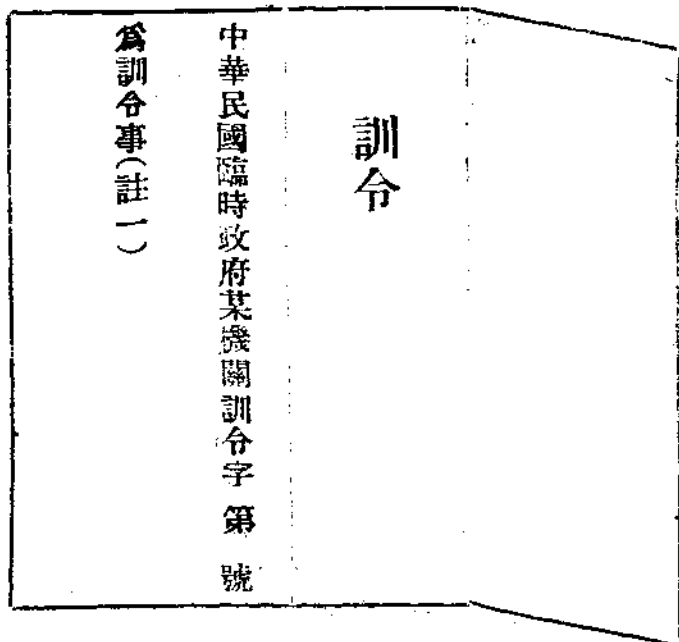 訓令
中華民國臨時政府某機關訓令字第　號
為訓令事(註一)